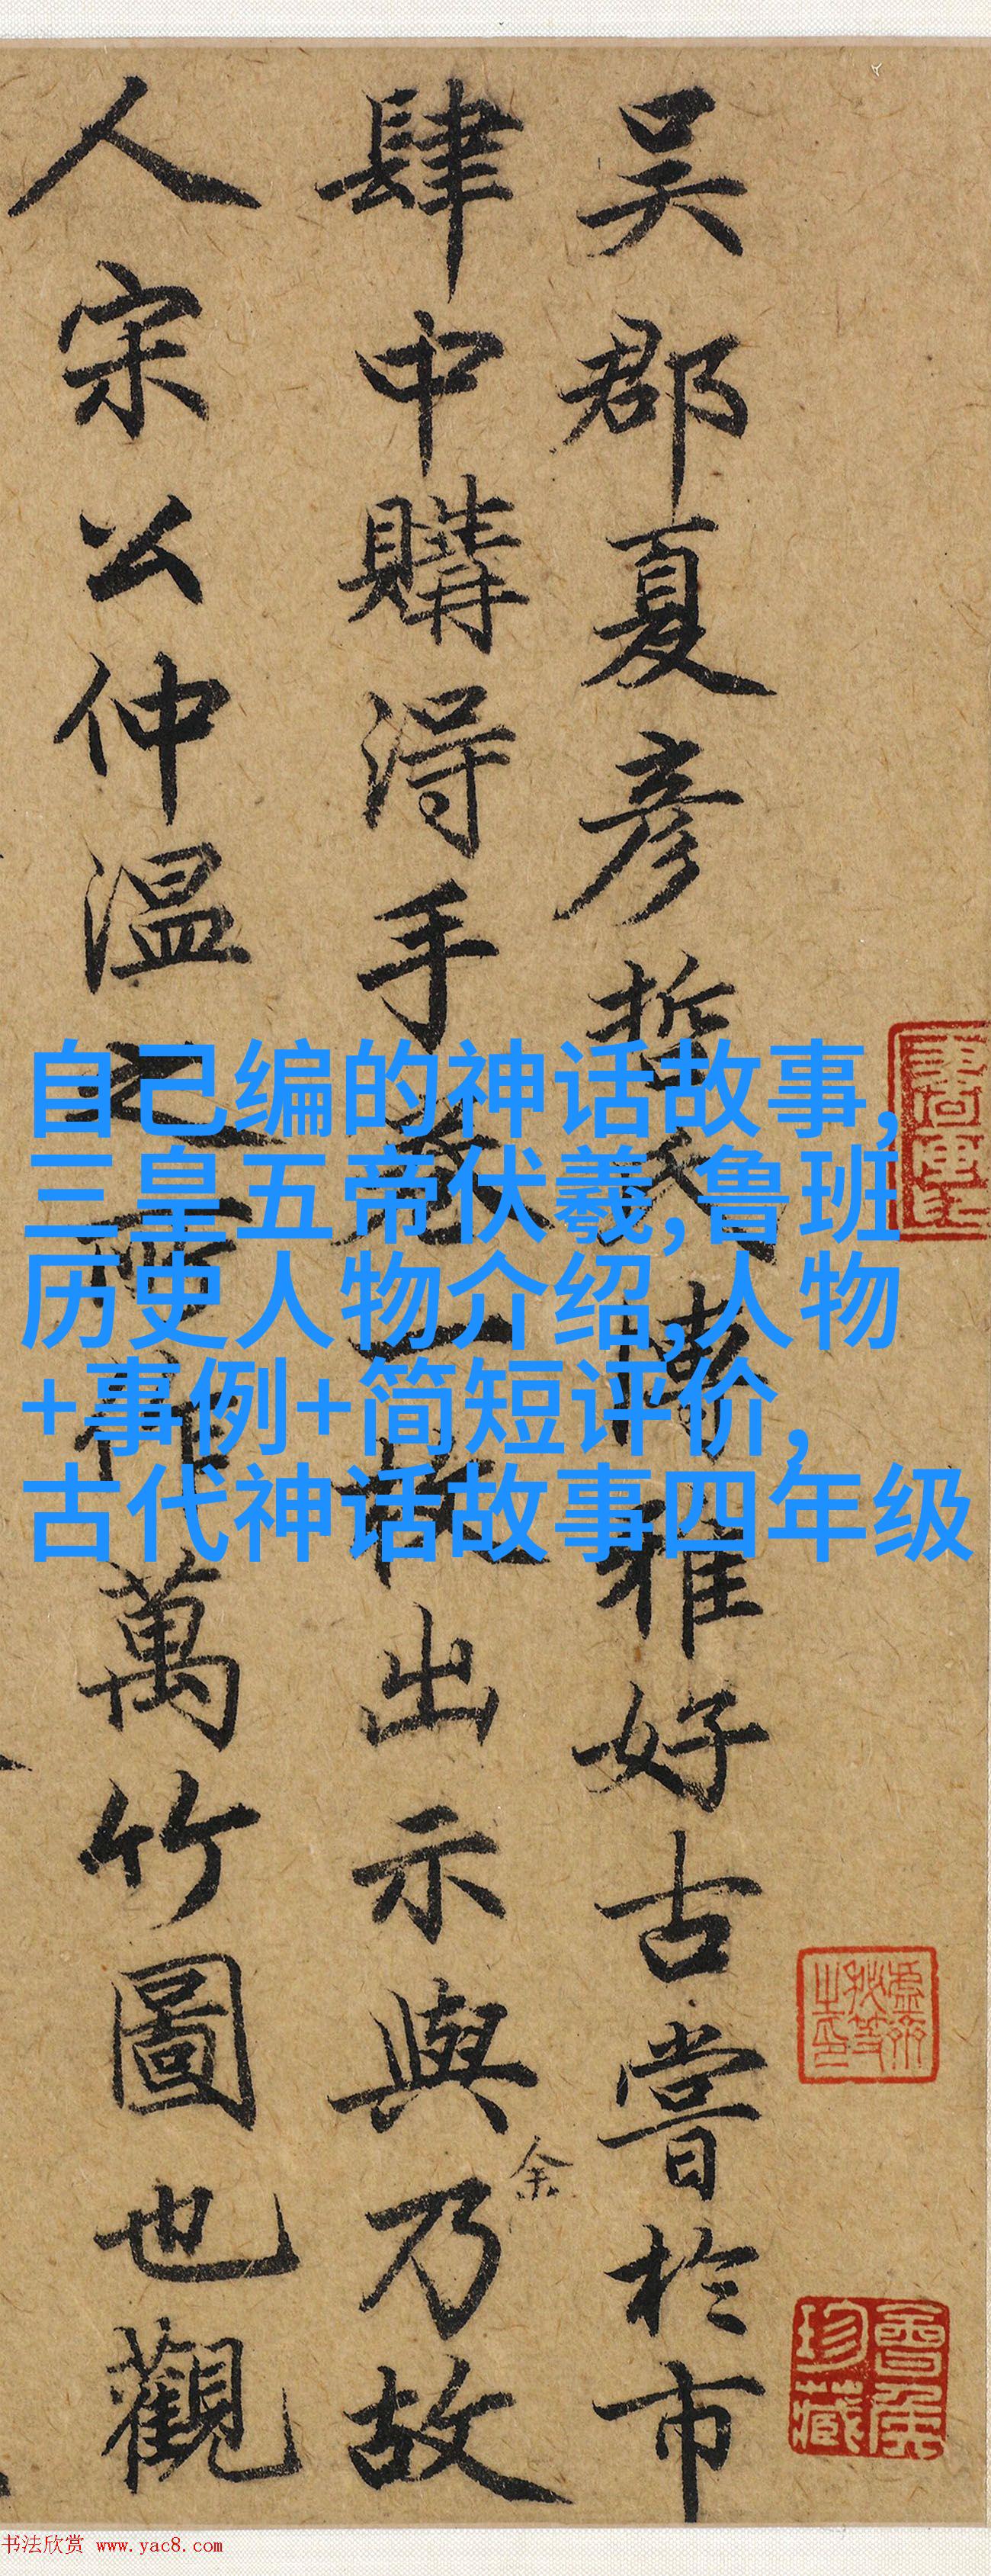 吴郡夏彥哲氏博雅好古嘗於市
肆中購得手卷一出示與乃故
余
人宋公仲溫之所作萬竹圖也觀
自己编的神话故事,
三皇五帝伏羲,鲁班
历史人物介绍,人物
+事例+简短评价,
古代神话故事四年级
珍藏
书法欣赏 www.yac8.com